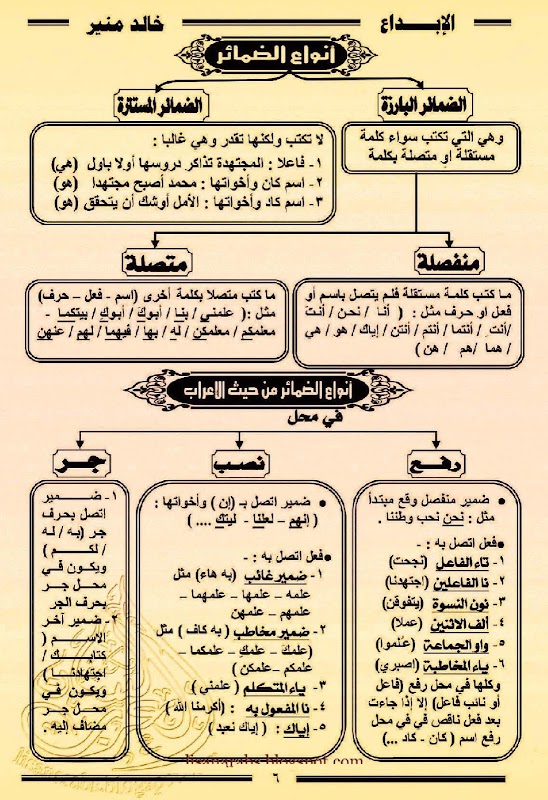 الإبـــداع
خالد منير
أنواع الضمائر
الضمائر البارزة
وهي التي تكتب سواء كلمة
مستقلة او متصلة بكلمة
الضمائر المستترة
لا تكتب ولكنها تقدر وهي غالبا :
١- فاعلا : المجتهدة تذاكر دروسها أولا باول (هي)
٢- اسم كان وأخواتها : محمد أصبح مجتهدا (هو)
٣- اسم كاد وأخواتها : الأمل أوشك أن يتحقق (هو)
منفصلة
ما كتب كلمة مستقلة فلم يتصل باسم أو
فعل او حرف مثل : ( أنا / نحن / أنتَ
/أنتِ / أنتما / أنتم / أنتن / إياك / هو / هي
/ هما /هم / هن )
متصلة
ما كتب متصلا بكلمة أخرى (اسم - فعل – حرف)
مثل :( علمني / بنا / أبوكَ / أبوكِ / بيتكما -
معلمكم / معلمكن / له / بها / فيهما / لهم / عنهن
أنواع الضمائر من حيث الإعراب
في محل
رفـــع
• ضمير منفصل وقع مبتدأ
مثل : نحن نحب وطننا .
•فعل اتصل به : -
١- تاء الفاعل (نجحت)
٢- نا الفاعلين (اجتهدنا)
٣- نون النسوة (يتفوقن)
٤- ألف الاثنين (عملا)
٥- واو الجماعة (علموا)
٦- ياء المخاطبة (اصبري)
وكلها في محل رفع (فاعل
أو نائب فاعل) إلا إذا جاءت
بعد فعل ناقص في في محل
رفع اسم ( كان - كاد ...)
نصب
• ضمير اتصل بـ (إن ) وأخواتها :
( إنهم – لعلنا - ليتك .... )
•فعل اتصل به : -
١- ضمير غائب (به هاء) مثل
علمه – علمها – علمهما –
علمهم – علمهن
٢- ضمير مخاطب ( به كاف ) مثل
(علمكَ – علمكِ – علمكما –
علمكم –علمكن )
٣- ياء المتكلم ( علمني )
٤- نا المفعول به : (أكرمنا الله )
٥- إياك : ( إياك نعبد )
جـــر
١- ضـــمير
اتصل بحرف
جر (به / له
/ لكـــم )
ويكـون فـي
محـــل جـــر
بحرف الجر
٢- ضمير آخر
الاســـم (
كتابـــك /
اجتهادنـــا )
ويكـون فـي
محـــل جـــر
مضاف إليه .
٦